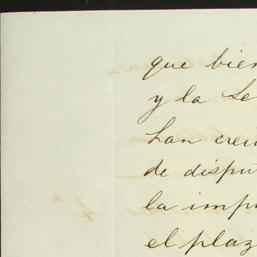 que bien
y la Se
han crei
de dispu
la impr
el plaz